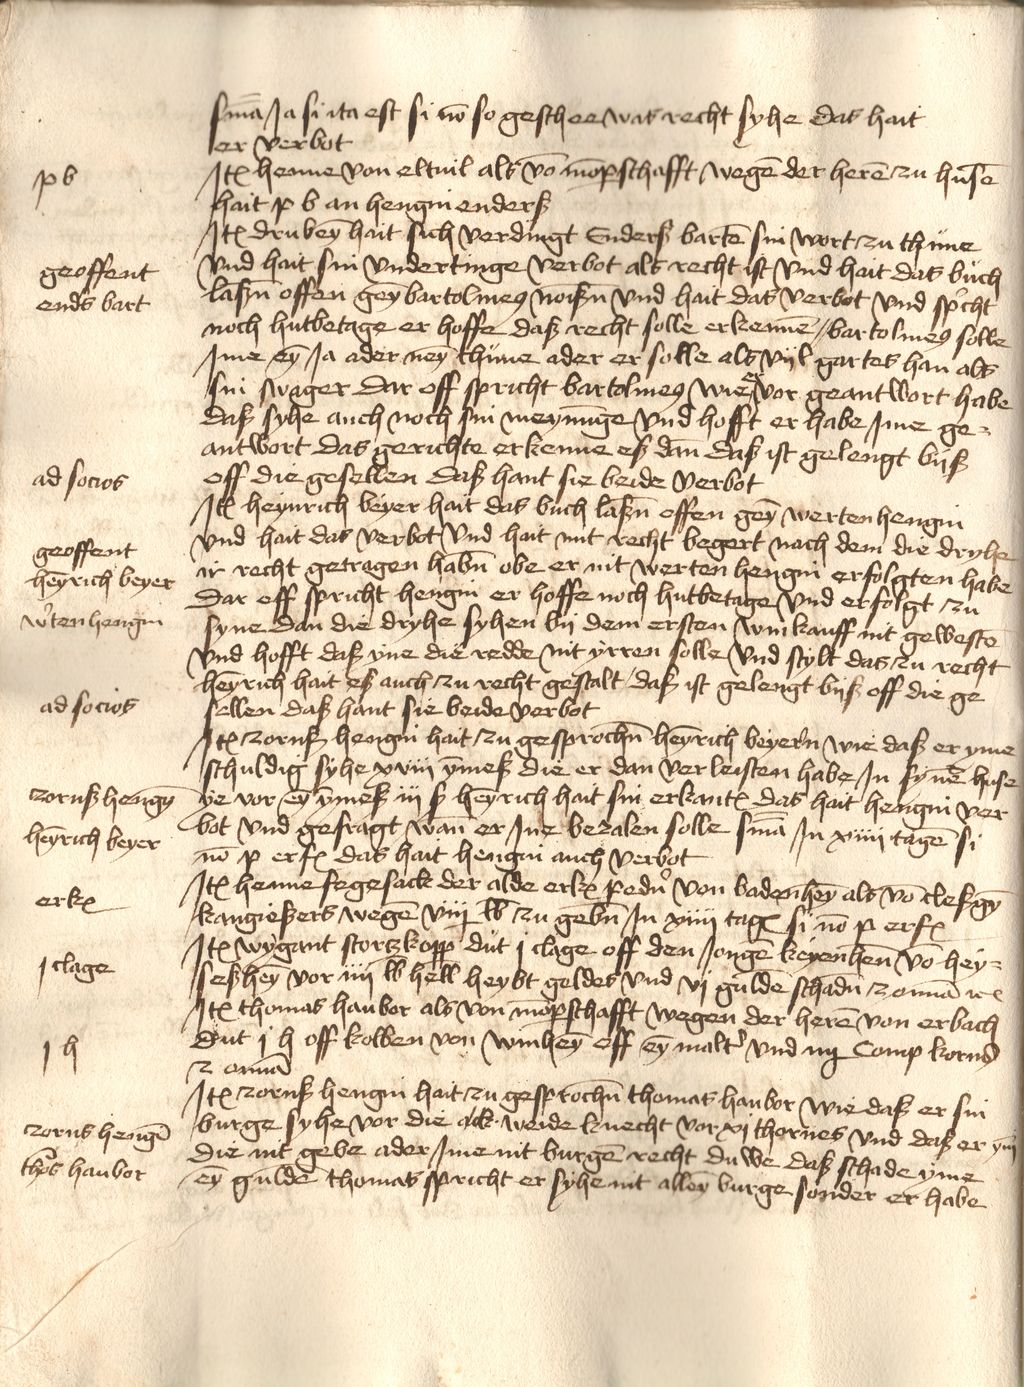 sm̄a Ja si ita est si nō so geschee was recht syhe das hait
er verbot
p b
Itꝫ henne von eltuil als vō mōp̄schafft wegē der herē zu husē
hait p b an hengin enderß
Itꝫ drubeȳ hait sich verdingt Enderß bartē sin wort zu thūne
geoffent
vnd hait sin vndertinge verbot als recht ist vnd hait das buch
endƨ bart
laßn̄ offen geȳ bartolmeꝰ noißn̄ vnd hait das verbot vnd sp̄cht
noch hutbetage er hoffe daß recht solle erkennē / bartolmeꝰ solle
Ime eȳ Ja ader neȳ thūne ader er solle als vijl gartes han als
sin swager dar off spricht bartolmeꝰ wie er vor geantwort habe
daß syhe auch noch sin meynūge vnd hofft er habe Ime ge-
antwort das gerichte erkenne eß dan̄ daß ist gelengt biß
ad socios
off die gesellen daß hant sie beide verbot
Itꝫ heynrich beyer hait das buch laßn̄ offen geȳ werten hengin
geoffent
vnd hait das verbot vnd hait mit recht begert nach dem die dryhe
heȳrich beyer
ir recht getragen habn̄ obe er nit werten hengin erfolgten habe
w̉ten hengin
dar off spricht hengin er hoffe noch hutbetage vnd erfolgt zu
syne dan die dryhe syhen bij dem ersten winkauff nit geweste
vnd hofft daß yne die redde nit yrren solle vnd stylt das zu recht
heȳrich hait eß auch zu recht gestalt / daß ist gelengt biß off die ge
ad socios
sellen daß hant sie beide verbot
Itꝫ zornß hengin hait zu gesprochn̄ heȳrich beyern wie daß er yme
schuldig syhe xviii ȳmeß die er dan verleisten habe In synē huse
zornß hengȳ
ye vor eȳ ȳmeß iii ß heȳrich hait sin erkantꝫ das hait hengin ver
heȳrich beyer
bot vnd gefragt wan̄ er Ine bezalen solle sm̄a In xiiii tagē si
nō p erfꝫ das hait hengin auch verbot
erkꝫ
Itꝫ henne fegesack der alde erkꝫ pedū von badenheȳ als vō clesgȳ
kangießers wegē viiij lb zu gebn̄ In xiiii tagꝫ si nō p erfꝫ
Itꝫ wygant stortzkopp dut j clage off den Jongē keyenhen̄ vō hey-
j clage
seßheȳ vor iiii lb hell heybt geldes vnd vj guldē schadn̄ z on̄ia rꝫ
Itꝫ thomas haubor als von mōp̄schafft wegen der herē von erbach
j h
dut j h off kolben von winheȳ off eȳ malt̉ vnd iiij Comp korns
z on̄ia
Itꝫ zornß hengin hait zu gesprochn̄ thomas haubor wie daß er sin
zorns hengī
burge syhe vor die weide knecht vor xi thornes vnd daß er ym
thōs haubor
die nit gebe ader Ime nit burgē recht duwe daß schade yme
eȳ guldē thomas spricht er syhe nit alleȳ burge sonder er habe